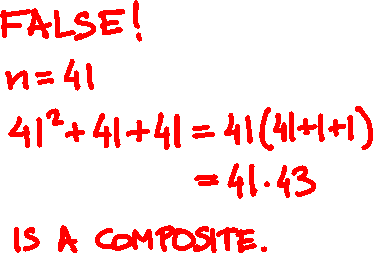 FALSE!
n = 41
41² + 41 + 41 = 41(41+1+1)
= 41·43
IS A COMPOSITE.